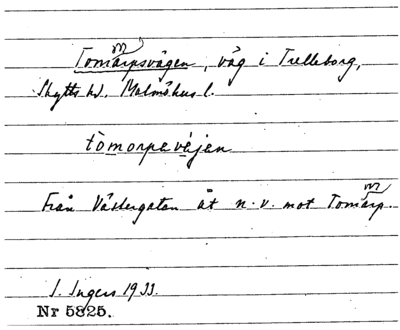 Tommarpsvägen, väg i Trelleborg,
Skytts hd. Malmöhus l.
tòmorpavä́jen
Från Västergatan åt n.v. mot Tommarp.
I. Ingers 1933.
Nr 5825.